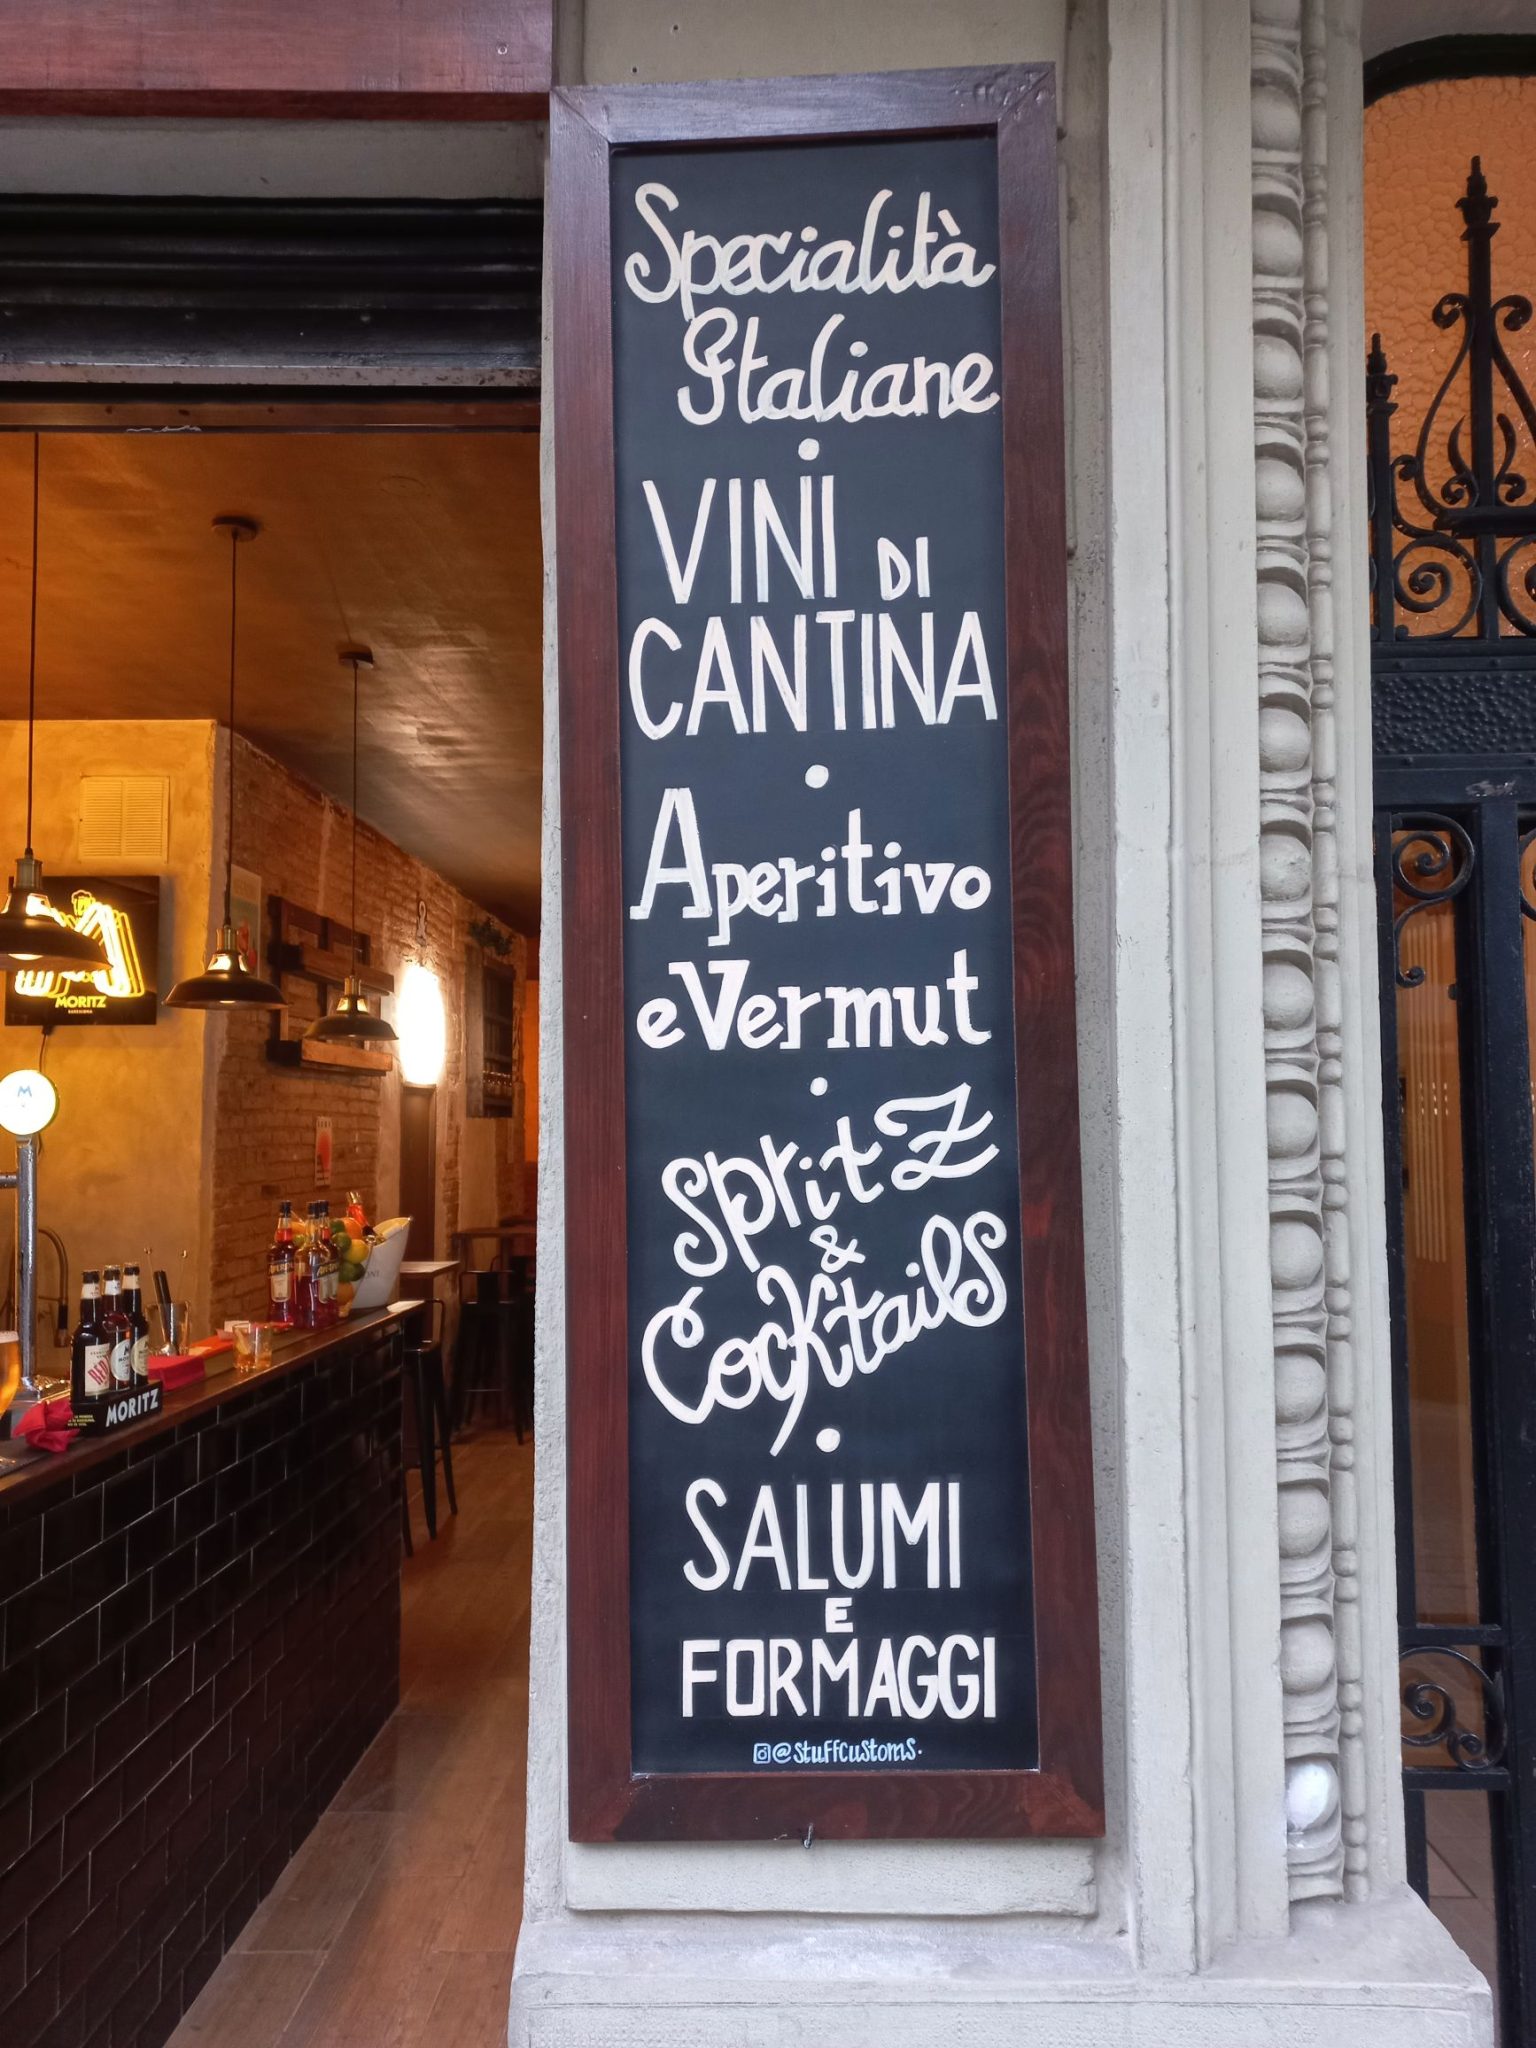 Specialità
Italiane
VINI DI
CANTINA
Aperitivo
e Vermut
Spritz
&
Cocktails
SALUMI
E
FORMAGGI
@stuffcustoms.
MORITZ
BARCELONA
M
MORITZ